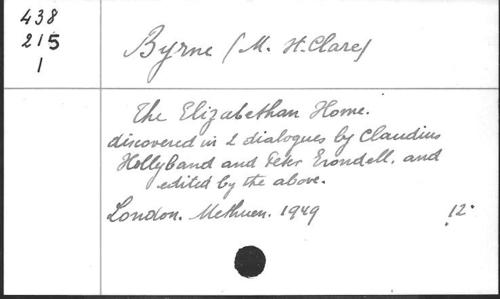 438
215
1
Byrne (M. St. Clare)
The Elizabethan Home.
discovered in 2 dialogues by Claudius
Hollyband and Peter Erondell, and
edited by the above.
London. Methuen. 1949 12.